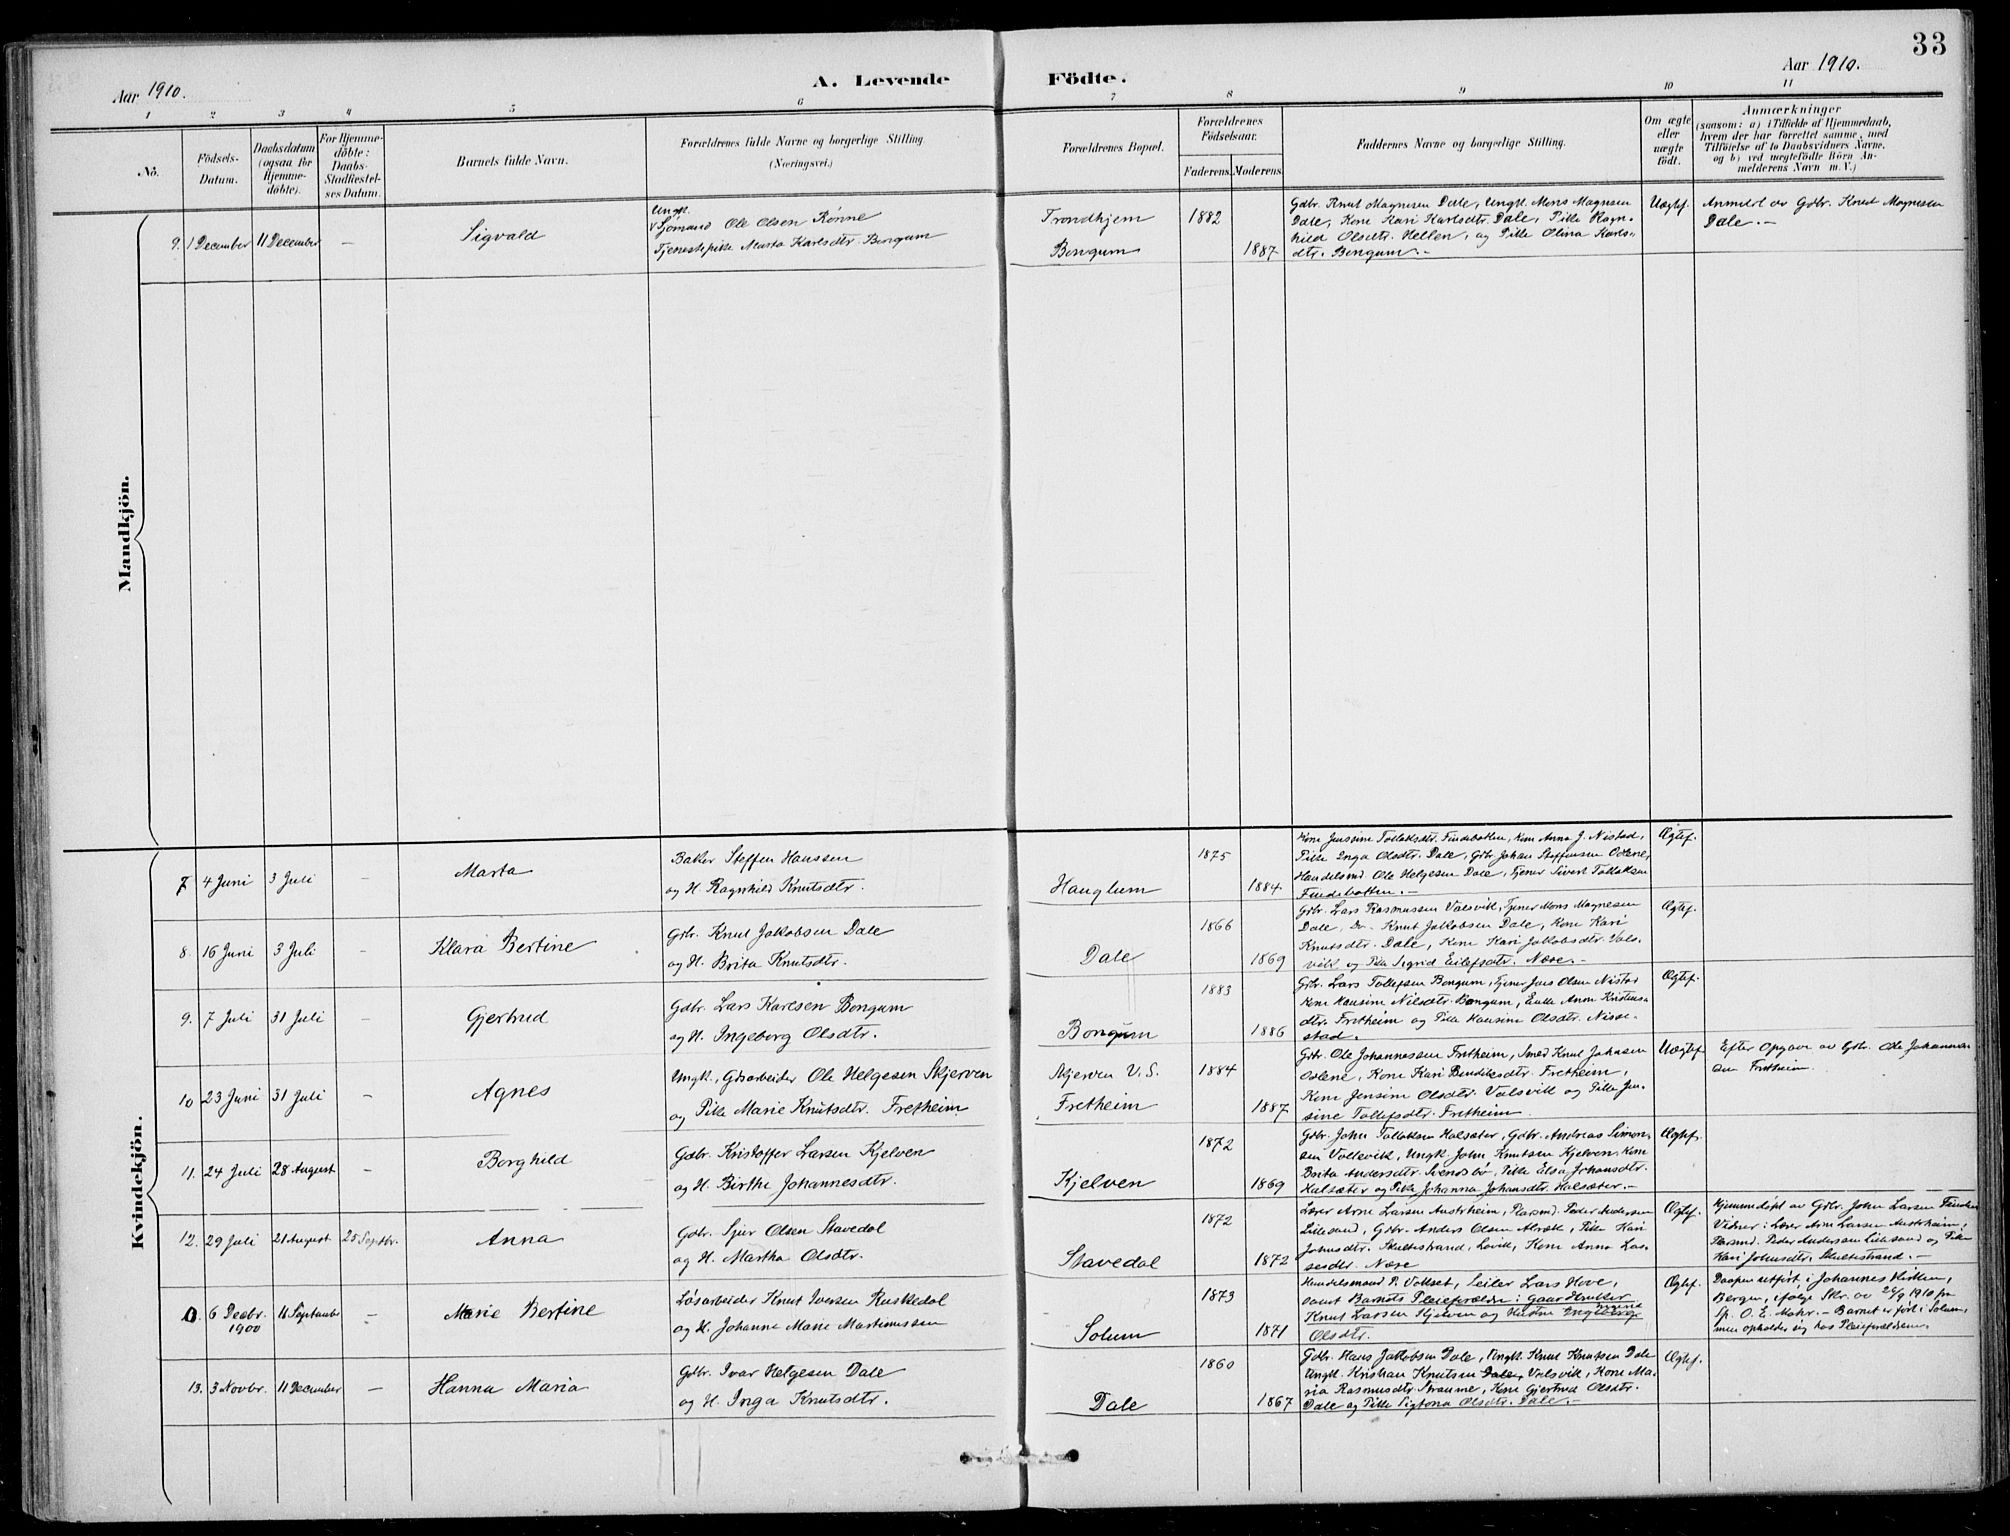 33
Aar 1910.
A. Levende Födte.
Aar 1910.
1 2 3 4 5 6 7 8 9 10 11
No.
Födsels-Datum.
Daabsdatum (ogsaa for Hjemme-döbte).
For Hjemme-döbte: Daabs-Stadfæstel-ses Datum.
Barnets fulde Navn.
Forældrenes fulde Navne og borgerlige Stilling
(Næringsvei.)
Forældrenes Bopæl.
Forældrenes Födselsaar.
Faderens. Moderens.
Faddernes Navne og borgerlige Stilling.
Om ægte eller uægte födt.
Anmærkninger
(saasom: a) i Tilfælde af Hjemmedaab,
hvem der har forrettet samme, med
Tilföielse af to Daabsvidners Navne,
og b) ved uægtefödte Börn An-
melderens Navn m. V.)
Mandkjön.
9. 1 December 11 December – Sigvald
Ungk. Sjømand Ole Olsen Rønne
Tjenestepike Marta Karlsdtr. Bongum
Trondhjem 1882
Bongum 1887
Gdbr. Knut Magnesen Dale, Ungk. Mons Magnesen
Dale, Kone Kari Karlsdtr. Dale, Pike Ragn-
hild Olsdtr. Hellen, og Pike Olina Karls-
dtr. Bongum.-
Uægtef.
Anmeldt av Gdbr. Knut Magnesen
Dale.-
Kvindekjön.
7 4 Juni 3 Juli – Marta
Baker Steffen Hanssen
og H. Ragnhild Knutsdtr.
Hauglum 1875 1884
Kone Jenssine Tollaksdtr. Findebotten, Kone Anna J. Nistad,
Pike Inga Olsdtr. Dale, Gdbr. Johan Steffensen Odene,
Handelsmd Ole Helgesen Dale, Tjener Sivert Tollaksen
Findebotten.-
Ægtef.
8. 16 Juni 3 Juli – Klara Bertine
Gdbr. Knut Jakobsen Dale
og H. Brita Knutsdtr.
Dale 1866 1869
Gdbr. Lars Rasmussen Valsvik, Tjener Mons Magnesen
Dale, Do Knut Jakobsen Dale, Kone Kari
Knutsdtr. Dale, Kone Kari Jakobsdtr. Vals-
vik og Pike Sigrid Eilefsdtr. Nese.-
Ægtef.
9. 7 Juli 31 Juli – Gjertrud
Gdbr. Lars Karlsen Bongum
og H. Ingeborg Olsdtr.
Bongum 1883 1886
Gdbr. Lars Tollefsen Bongum, Tjener Jens Olsen Nistad
Kone Hansine Nilsdtr. Bongum, Enke Anna Kristens-
dtr. Fretheim og Pike Hansine Olsdtr. Nisse-
stad.
Ægtef.
10 23 Juni 31 Juli – Agnes
Ungk., Gdsarbeider Ole Helgesen Skjerven
og Pike Marie Knutsdtr. Fretheim
Skjerven V. S. 1884
Fretheim 1887
Gdbr. Ole Johannessen Fretheim, Smed Knut Johnsen
Odene, Kone Kari Bendiksdtr. Fretheim,
Kone Jensine Olsdtr. Valsvik og Pike Jen-
sine Tollefsdtr. Fretheim
Uægtef.
Efter Opgave av Gdbr. Ole Johannes-
sen Fretheim.
11. 24 Juli 28 August – Borghild
Gdbr. Kristoffer Larsen Kjelven
og H. Birthe Johannesdtr.
Kjelven 1872 1869
Gdbr. John Tollaksen Halsæter, Gdbr. Andreas Simon-
sen Vollevik, Ungk. John Knutsen Kjelven, Kone
Brita Andersdtr. Svendsbø, Pike Elsa Johansdtr.
Halsæter og Pike Johanna Johansdtr. Halsæter.-
Ægtef.
12. 29 Juli 21 August 25 Septbr. Anna
Gdbr. Sjur Olsen Stavedal
og H. Martha Olsdtr.
Stavedal 1872 1872
Lærer Arne Larsen Austrheim, Plarsmd. Peder Andersen
Lillesand, Gdbr. Anders Olsen Alræk, Pike Kari
Johnsdtr. Skultestrand, Lavik, Kone Anna Las-
sesdtr. Nese
Ægtef.
Hjemmedøpt av Gdbr. John Larsen
Vidner: Lærer Arne Larsen Austrheim,
Plarsmd. Peder Andersen Lillesand og Pike
Kari Johnsdtr. Skultestrand.-
6 Decbr. 1900 16 September – Marie Bertine
Løsarbeider Knut Iversen Ruskedal
og H. Johanne Marie Martinussen
Solum 1873 1871
Handelsmand P. Vollset, Seiler Lars Hove,
samt Barnets Pleieforældre: Gaardbruker
Knut Larsen Skjelven og Hustru
Olsdtr.
Ægtef.
Daapen utført i Johannes Kirken,
Bergen, ifølge Skr. av 24/9 1910 fra
Sp. O. E. Mohr.- Barnet er født i Solum,
men opholder sig hos Pleieforældrene.
13. 3 Novbr. 11 December – Hanna Maria
Gdbr. Ivar Helgesen Dale
og H. Inga Knutsdtr.
Dale 1860 1867
Gdbr. Hans Jakobsen Dale, Ungk. Knut Knutsen Dale
Ungk. Kristian Knutsen Dale, Valsvik, Kone Ma-
ria Rasmusdtr. Straume, Kone Gjertrud Olsdtr.
Dale og Pike Olsdtr. Dale.-
Ægtef.